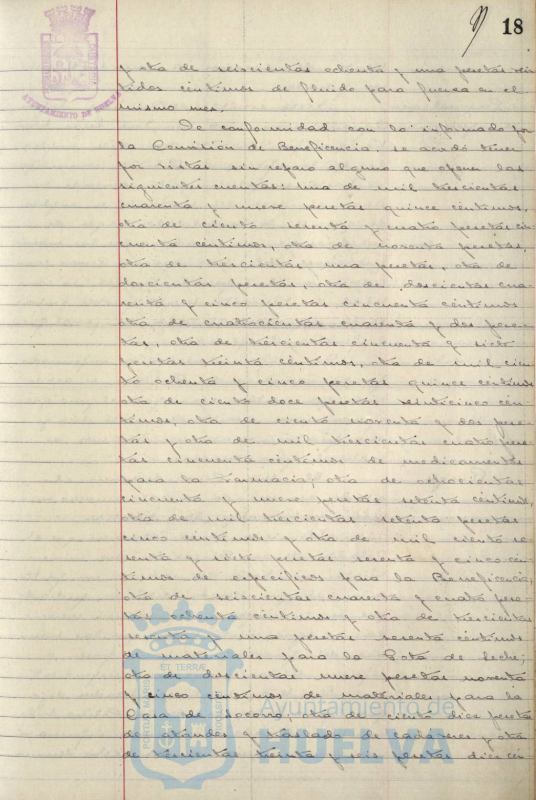 18
y otra de seiscientas ochenta y una pesetas vein
tidos céntimos de fluido para fuerza en el
mismo mes.
De conformidad con lo informado por
la Comisión de Beneficencia, se acordó tener
por vistas sin reparo alguno que oponer las
siguientes cuentas: una de mil trescientas
cuarenta y nueve pesetas quince céntimos,
otra de ciento sesenta y cuatro pesetas cin
cuenta céntimos, otra de noventa pesetas,
otra de trescientas una pesetas, otra de
doscientas pesetas, otra de doscientas cua
renta y cinco pesetas cincuenta céntimos
otra de cuatrocientas cuarenta y dos pese
tas, otra de trescientas cincuenta y siete
pesetas treinta céntimos, otra de mil cien
to ochenta y cinco pesetas quince céntimos
otra de ciento doce pesetas veinticinco cén
timos, otra de ciento noventa y dos pese
tas y otra de mil trescientas cuatro pese
tas cincuenta céntimos de medicamentos
para la Farmacia; otra de ochocientas
cincuenta y nueve pesetas setenta céntimos,
otra de mil trescientas setenta pesetas
cinco céntimos y otra de mil ciento se
senta y siete pesetas sesenta y cinco cén
timos de específicos para la Beneficencia;
otra de seiscientas cuarenta y cuatro pese
tas ochenta céntimos y otra de trescientas
sesenta y una pesetas sesenta céntimos
de materiales para la Gota de Leche;
otra de doscientas nueve pesetas noventa
y cinco céntimos de materiales para la
Casa de Socorro, otra de ciento diez pesetas
de ataudes y traslado de cadáveres y otra
de trescientas treinta y seis pesetas diez cén
AYUNTAMIENTO DE HUELVA
Ayuntamiento de
HUELVA